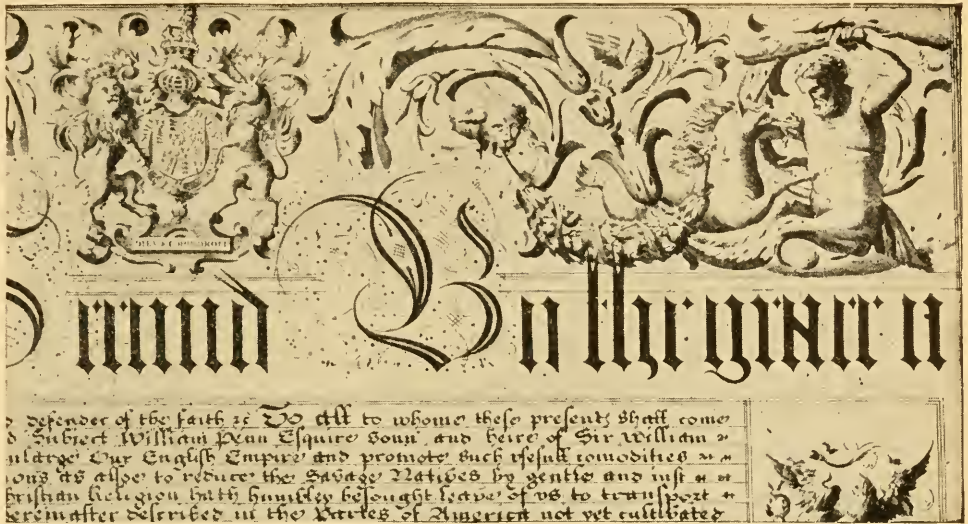 DIEU ET MON DROIT
By the grace
defender of the faith &c To all to whome these presents shall come
Subiect William Penn Esquire Sonn and heire of Sir William
enlarge Our English Empire and promote such usefull comodities
ons as alsoe to reduce the Savage Natives by gentle and iust
hristian Religion hath humbley besought leave of vs to transport
hereinafter described in the Partes of America not yet cultivated